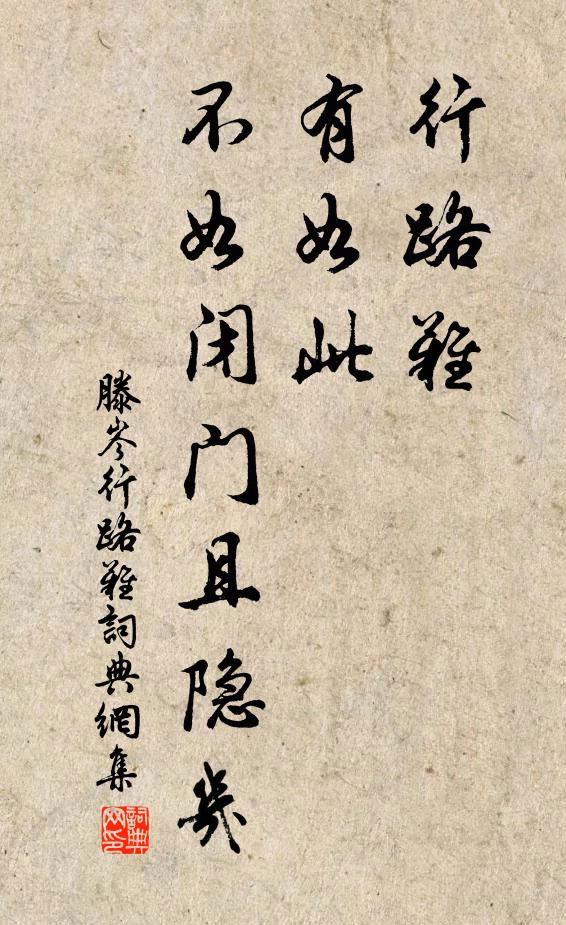 行路難
有如此
不如闭门且隐几
滕岑行路難詞典網集
詞典网印